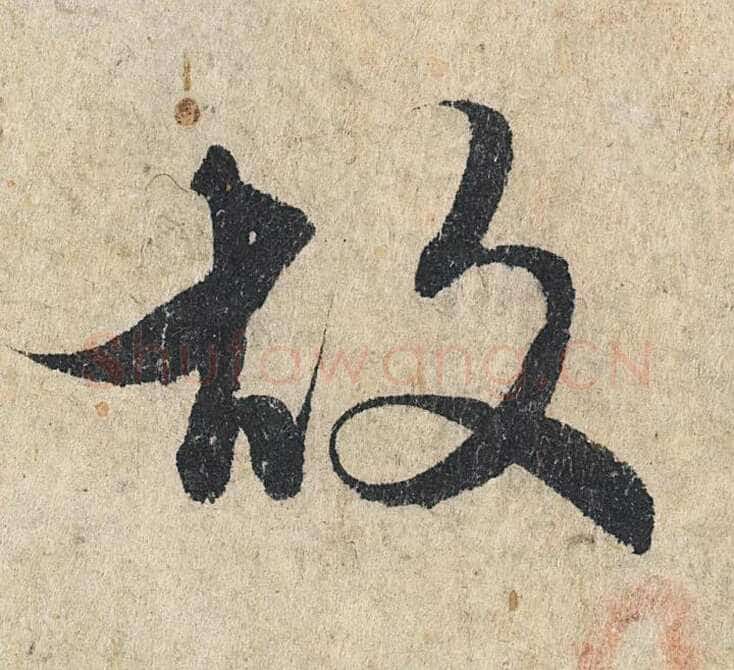 故
shufawang.CN